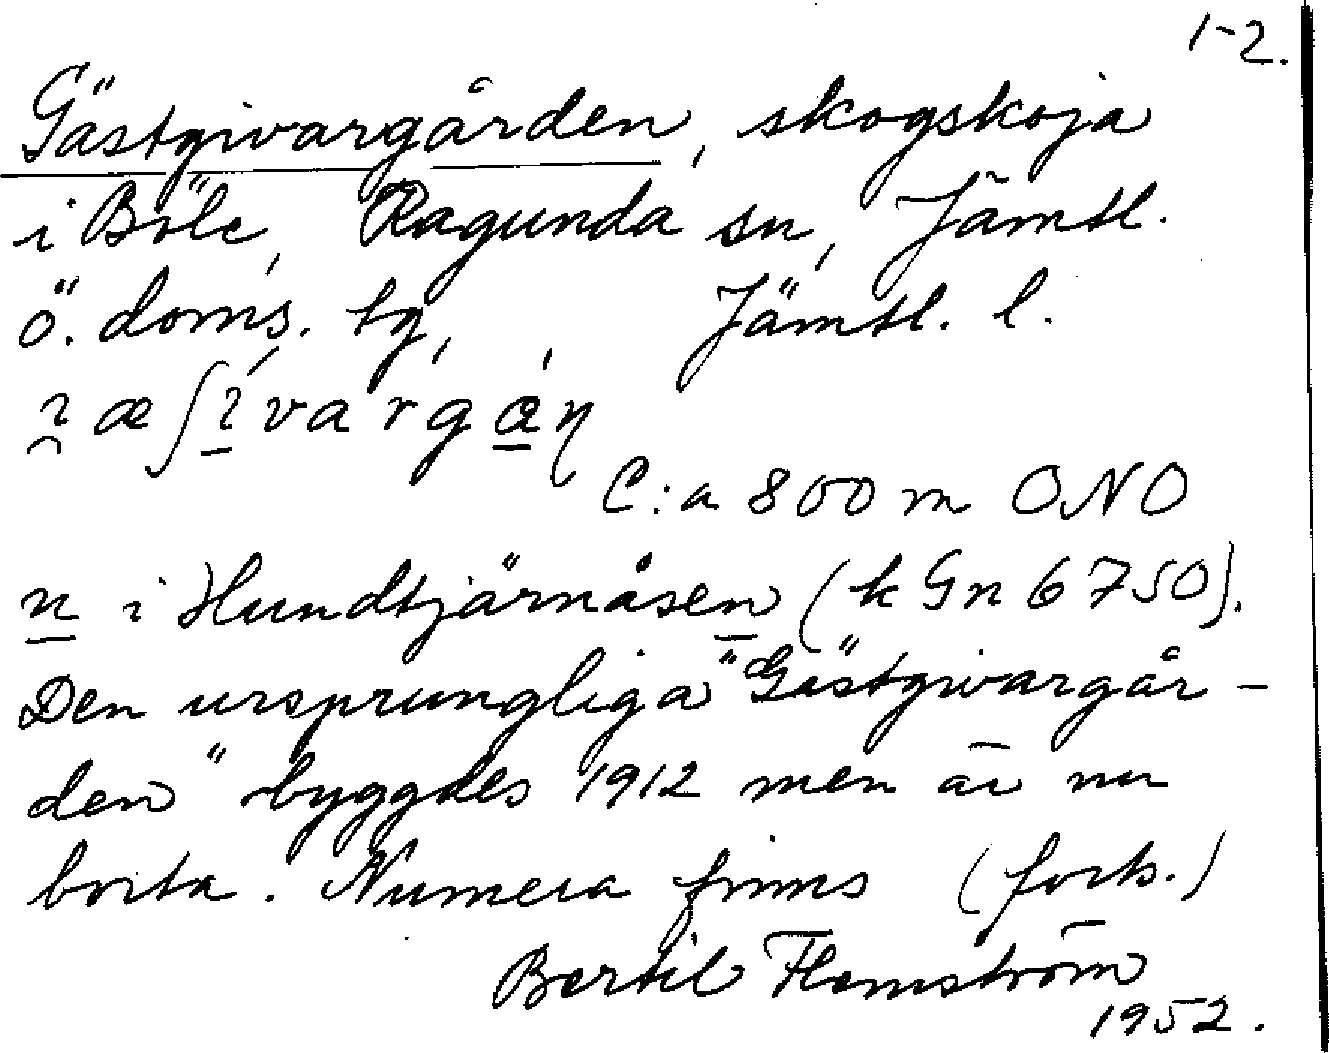 1-2.
Gästgivargården, skogskoja
i Böle, Ragunda sn, Jämtl.
ö. doms. tg, Jämtl. l.
C:a 800 m ONO
n i Hundtjärnåsen (k Gn 6750).
Den ursprungliga "Gästgivargår-
den" byggdes 1912 men är nu
borta. Numera finns (forts.)
Bertil Flemström
1952.